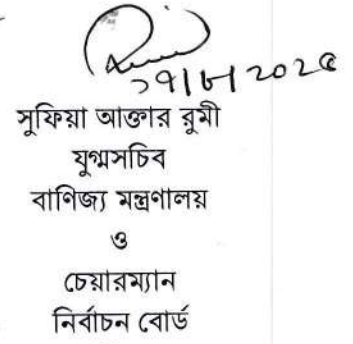 সুফিয়া আক্তার রুমী
যুগ্মসচিব
বাণিজ্য মন্ত্রণালয়
ও
চেয়ারম্যান
নির্বাচন বোর্ড